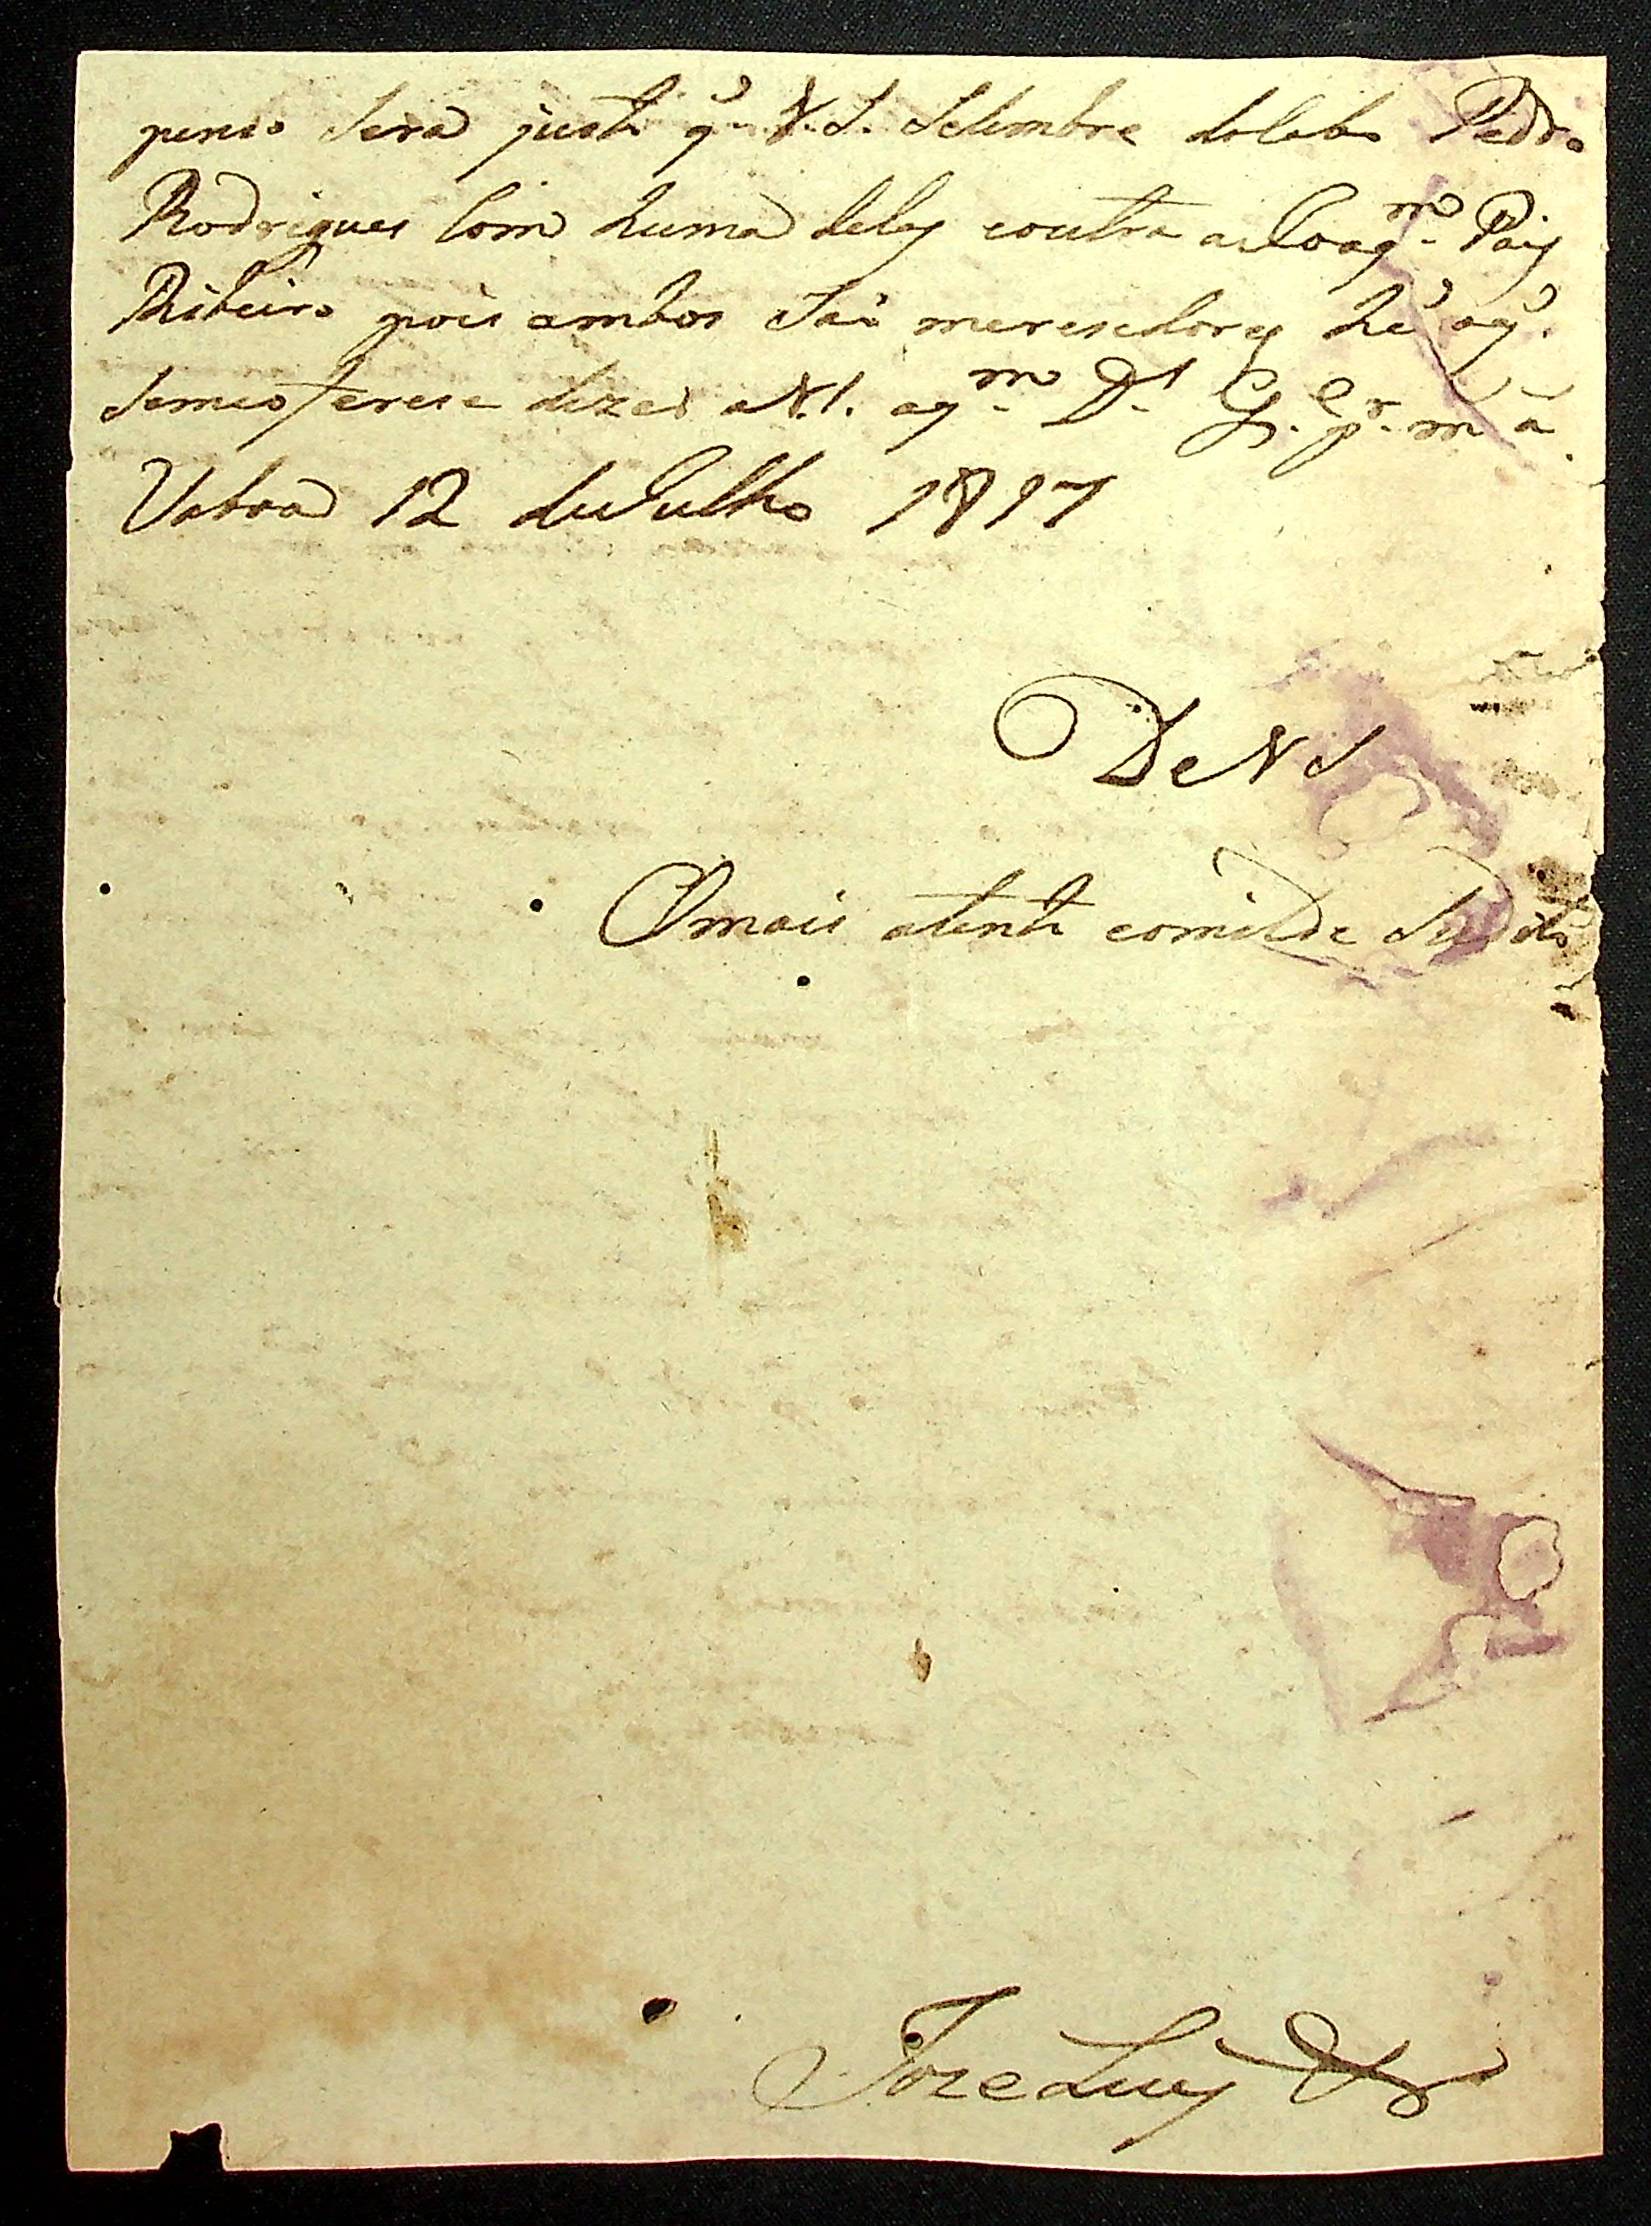 penso Sera justo q̃ V. S. Selembre docabo Pedro
Rodrigues Com huma deley eoutra aoJoaqm. Paiz
Ribeiro pois ambos Saõ meresedorez hé oq̃.
Semeoferese dizer a V. S. aqm. Ds. Ge. pr. ms. as.
Uabra 12 deJulho 1817
De V S
O mais atento eomilde Sudito
Joze Luiz